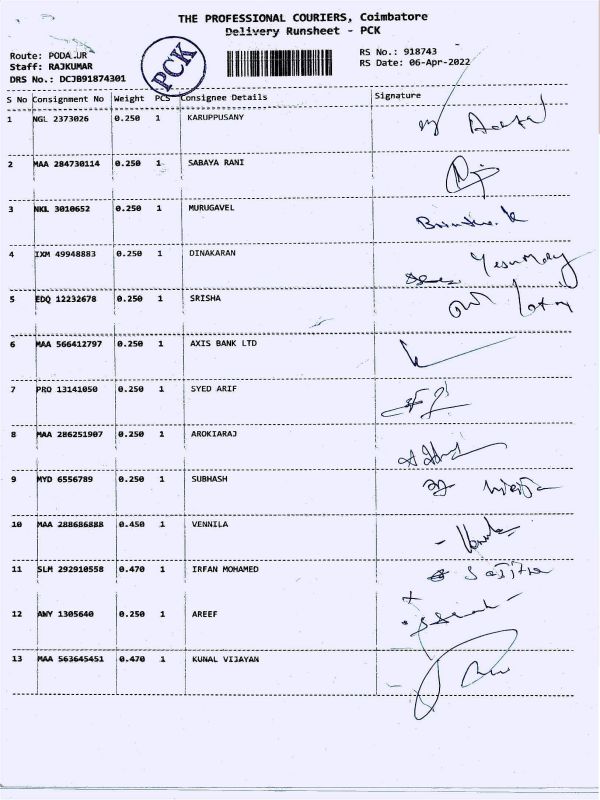 THE PROFESSIONAL COURIERS, Coimbatore
Delivery Runsheet - PCK
Route: PODA.UR
Staff: RAJKUMAR
DRS No.: DCJB91874301
PCK
RS No.: 918743
RS Date: 06-Apr-2022
S No Consignment No Weight PCS Consignee Details Signature
1 NGL 2373026 0.250 1 KARUPPUSANY
2 MAA 284730114 0.250 1 SABAYA RANI
3 NKL 3010652 0.250 1 MURUGAVEL
4 IXM 49948883 0.250 1 DINAKARAN
5 EDQ 12232678 0.250 1 SRISHA
6 MAA 566412797 0.250 1 AXIS BANK LTD
7 PRO 13141050 0.250 1 SYED ARIF
8 MAA 286251907 0.250 1 AROKIARAJ
9 MYD 6556789 0.250 1 SUBHASH
10 MAA 288686888 0.450 1 VENNILA
11 SLM 292910558 0.470 1 IRFAN MOHAMED
12 AWY 1305640 0.250 1 AREEF
13 MAA 563645451 0.470 1 KUNAL VIJAYAN